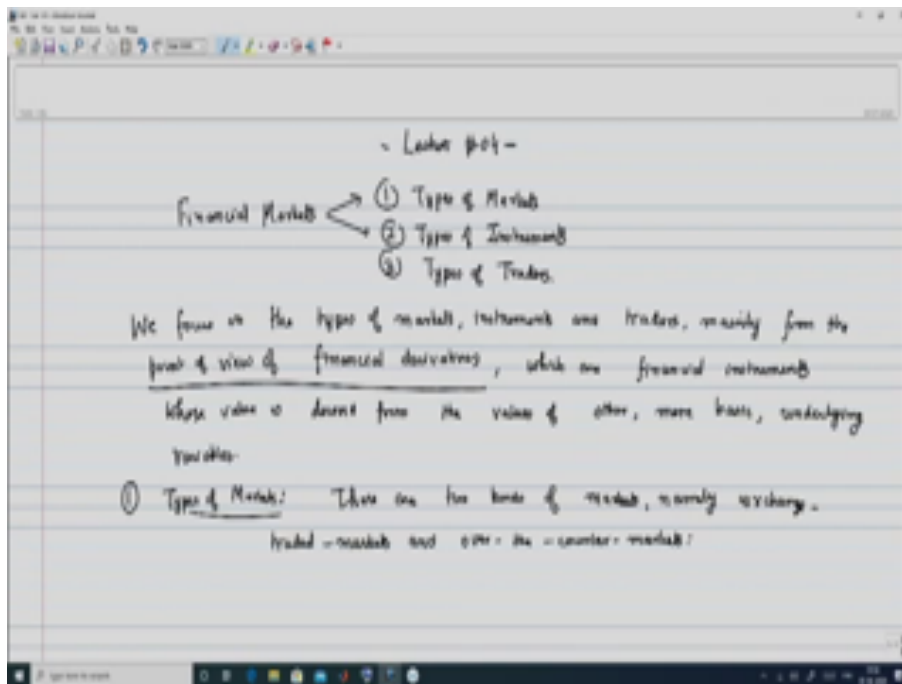 - Lecture #04 -
Financial Markets
① Types of Markets
② Types of Instruments
③ Types of Traders.
We focus on the types of markets, instruments and traders, mainly from the
point of view of financial derivatives, which are financial instruments
whose value is derived from the values of other, more basic, underlying
variables.
① Types of Markets: There are two kinds of markets, namely exchange-
traded-markets and over-the-counter-markets:
Type here to search